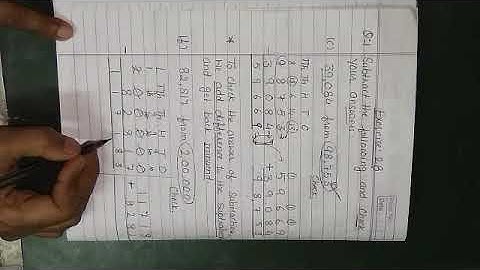 Exercise 2.8
Q.1 Subtract the following and check
your answers.
(c) 39,084 from 98,753
Check
TTh Th H T O
9 8 7 5 3
- 3 9 0 8 4
5 9 6 6 9
5 9 6 6 9
+ 3 9 0 8 4
9 8 7 5 3
* To check the answer of subtraction
we add difference to the subtrahend
and get back minuend
(b) 82,817 from 200,000
Check
L TTh Th H T O
2 0 0 0 0 0
- 8 2 8 1 7
1 1 7 1 8 3
1 1 7 1
+ 8 2 8